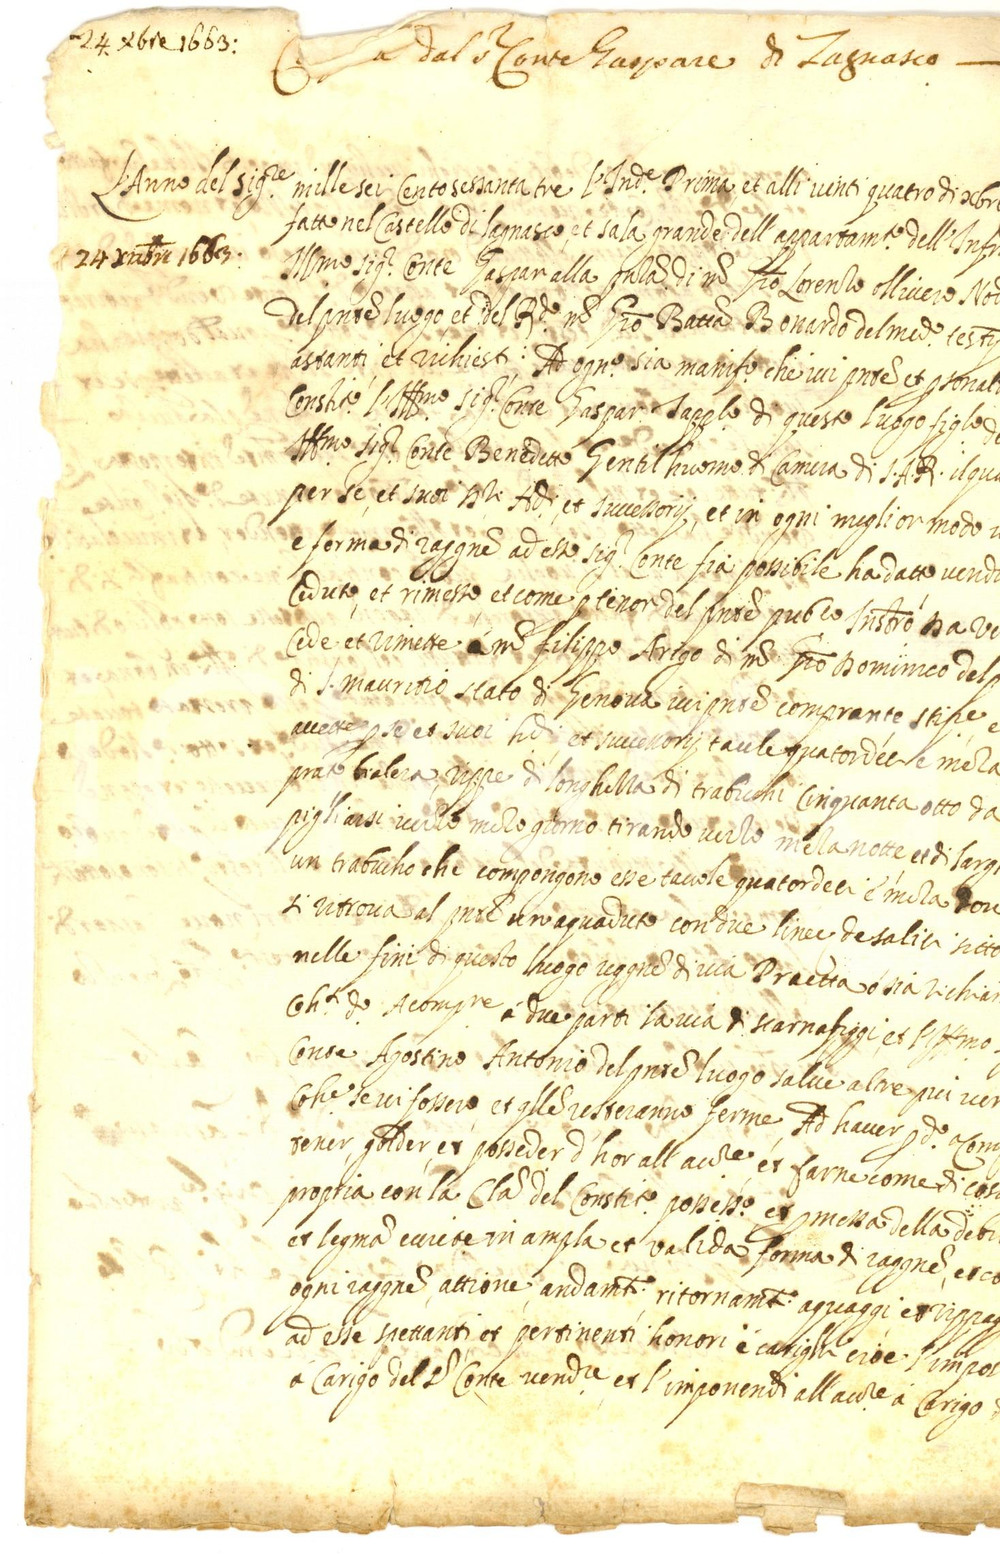 24 xbre 1663:
a dal sr Conte Gaspare di Lagnasco
L'Anno del sigre mille sei Cento sessanta tre l'Inde Prima, et alli vinti quatro di xbre
fatto nel Castello di lagnasco, et sala grande dell' appartamto dell'Infr
24 xmbre 1663:
Illmo sigr Conte Gaspar alla pnza di mr Gio Lorenzo ollivero Not
del pnte luogo et del Rdo mr Gio Batta Bonardo del medo testy
astanti et richiesti: Ad ogno sia manifo che ivi pnte et psonalt
Constito l'Illmo sigr Conte Gaspar Tapplo di questo luogo figlo de
Illmo sigr Conte Benedetto Gentilhuomo di Camera di S.A.R. il qua
per se, et suoi hdi, et successorij, et in ogni miglior modo
e forma di raggne ad esso sigr Conte sia possibile ha datto vendu
Ceduto, et rimesso, et come p tenor del pnte publo Instro ha ve
Cede et rimette a mr filippo Arigo di mr Gio Dominico del
di S. mauritio stato di Genova ivi pnte comprante stipe e
accette p se et suoi hdi et successorij tavole quatordeci e meza
prato balera, rippe di longhezza di trabuchi Cinquanta otto da
pigliarsi verso mezo giorno tirando verso meza notte et di larg
un trabucho che compongono esse tavole quatordeci e meza
si ritrova al pnte un aquaduto con due linee de salici sitto
nelle fini di questo luogo reggne di via Praetta o sia richiar
Coht do Acompre a due parti la via di scarnafiggi, et l'Illmo
Conte Agostino Antonio del pnte luogo salve altre piu ver
Cohe se vi fossero et qlle resteranno ferme Ad haver pdo acomp
tener, golder, et posseder d'hor all' avre, et farne come di cosa
propria con la Cla del Constito possesso, et pmessa della debi
et legma evitte in ampla et valida forma di raggne, et co
ogni raggne, attione, andamti ritornamti aquaggi et rippag
ad esse spettanti et pertinenti honori e carighi cioe l'impos
a Carigo del Sr Conte vendre, et l'imponendi all avre a Carigo